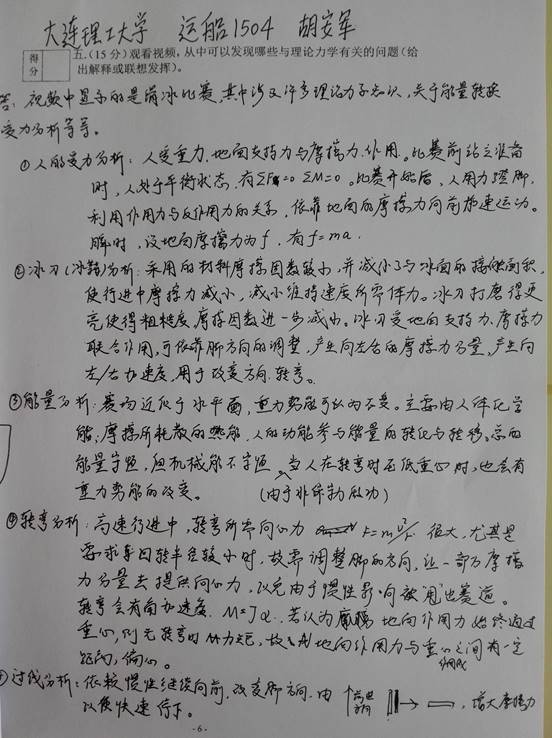 大连理工大学 运船1504 胡安军
得分
五.(15分)观看视频,从中可以发现哪些与理论力学有关的问题(给
出解释或联想发挥)。
答:视频中显示的是滑冰比赛,其中涉及许多理论力学知识,关于能量转换
受力分析等等。
①人的受力分析:人受重力.地面支持力与摩擦力.作用。比赛前站立准备
时,人处于平衡状态.有ΣF=0 ΣM=0。比赛开始后,人用力蹬脚,
利用作用力与反作用力的关系,依靠地面的摩擦力向前加速运动。
瞬时,设地面摩擦力为f.有f=ma.
②冰刀(冰鞋)分析:采用的材料摩擦因数较小,并减小了与冰面的接触面积,
使行进中摩擦力减小,减小维持速度所需体力。冰刀打磨得更
亮使得粗糙度.摩擦因数进一步减小。冰刀受地面支持力.摩擦力
联合作用,可依靠脚方向的调整,产生向左右的摩擦力分量,产生向
左/右加速度,用于改变方向.转弯。
③能量分析:赛场近似于水平面,重力势能可认为不变。主要由人体化学
能,摩擦所耗散的热能,人的动能参与能量的转化与转移。总的
能量守恒,但机械能不守恒。当人在转弯时压低重心时,也会有
重力势能的改变。 (由于非保守力做功)
④转弯分析:高速行进中,转弯所需向心力 F=mv²/r 很大,尤其是
要求每回转半径较小时.故需调整脚的方向,让一部分摩擦
力分量去提供向心力,以免由于惯性影响被甩出赛道。
转弯会有角加速度.M=Jα.若认为 地面作用力始终通过
重心,则无转弯时M力矩,故 地面作用力与重心之间有一定
距离,偏心。
⑤过线分析:依靠惯性继续向前,改变脚方向.由 前进方向 → ,增大摩擦力
以便快速停下。
-6-